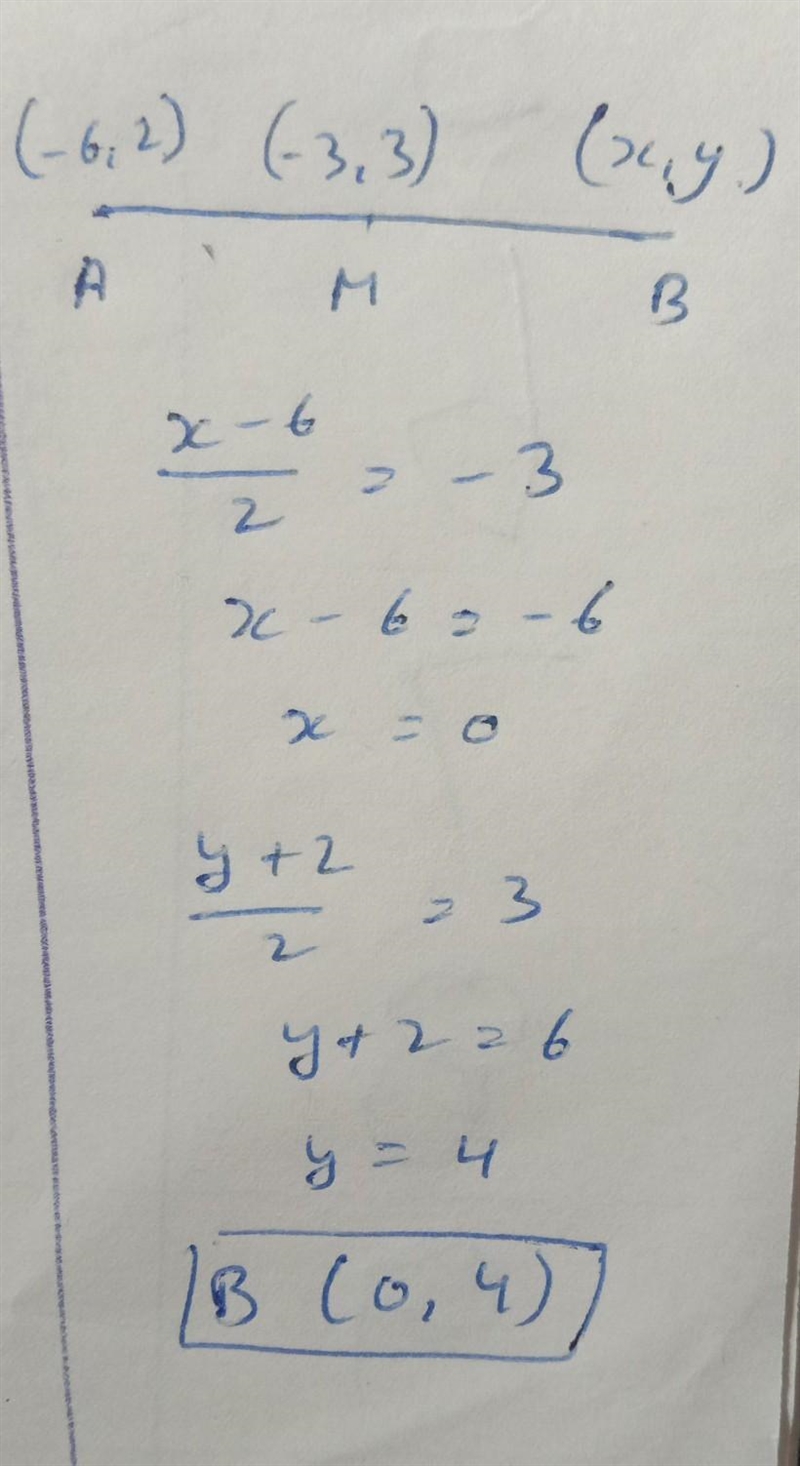 (-6, 2) (-3, 3) (x, y)
A M B
x - 6
2 = - 3
x - 6 = - 6
x = 0
y + 2
2 = 3
y + 2 = 6
y = 4
B (0, 4)